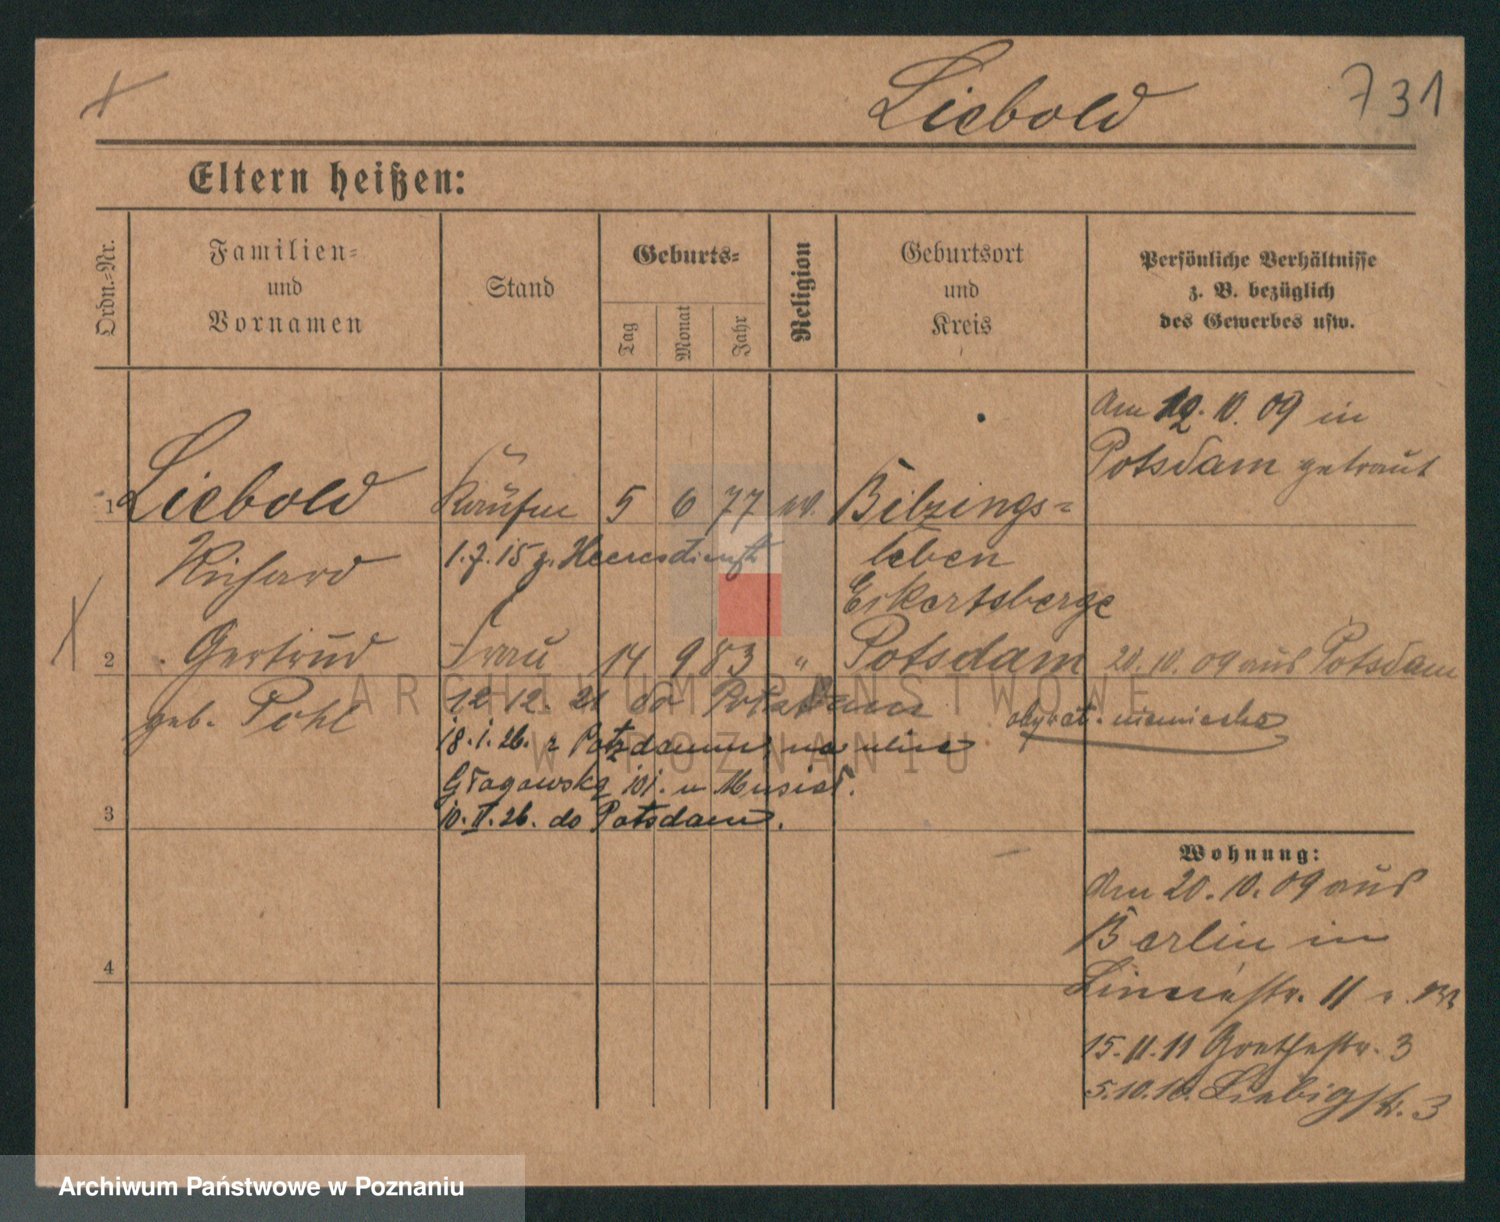 Liebold 731
Eltern heißen:
Ordn.=Nr.
Familien=
und
Vornamen
Stand
Geburts=
Tag
Monat
Jahr
Religion
Geburtsort
und
Kreis
Persönliche Verhältnisse
z. B. bezüglich
des Gewerbes usw.
Am 12. 10. 09 in
Potsdam getraut
1 Liebold Kaufm 5 6 77 ev. Bilzings=
Richard 1.7.15 z. Heeresdienst leben
Eckartsberge
2 Gertrud Frau 14 9 83 " Potsdam 20. 10. 09 aus Potsdam
geb. Pohl 12. 12. 21 do Potsdam
obywat. niemiecka
18. 1. 26. z Potzdamu na ulice
Głogowska 101. u Musiał.
3 10. II. 26. do Potsdam.
Wohnung:
Am 20. 10. 09 aus
Berlin in
4
11
15. 11. 11 Goethestr. 3
5. 10. Liebigstr. 3
ARCHIWUM PAŃSTWOWE
W POZNANIU
Archiwum Państwowe w Poznaniu